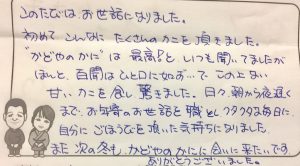 このたびは、お世話になりました。
初めてこんなにたくさんのカニを頂きました。
"かどやのかに"は最高!と、いつも聞いてましたが
ほんと、百聞はひと口に如かず…で この上ない
甘いカニを食し驚きました。日々、朝から夜遅く
まで、お年寄のお世話を職としクタクタな毎日に、
自分にごほうびを頂いた気持ちになりました。
また次の冬も、かどやのかにに会いに来たいです。
ありがとうございました。